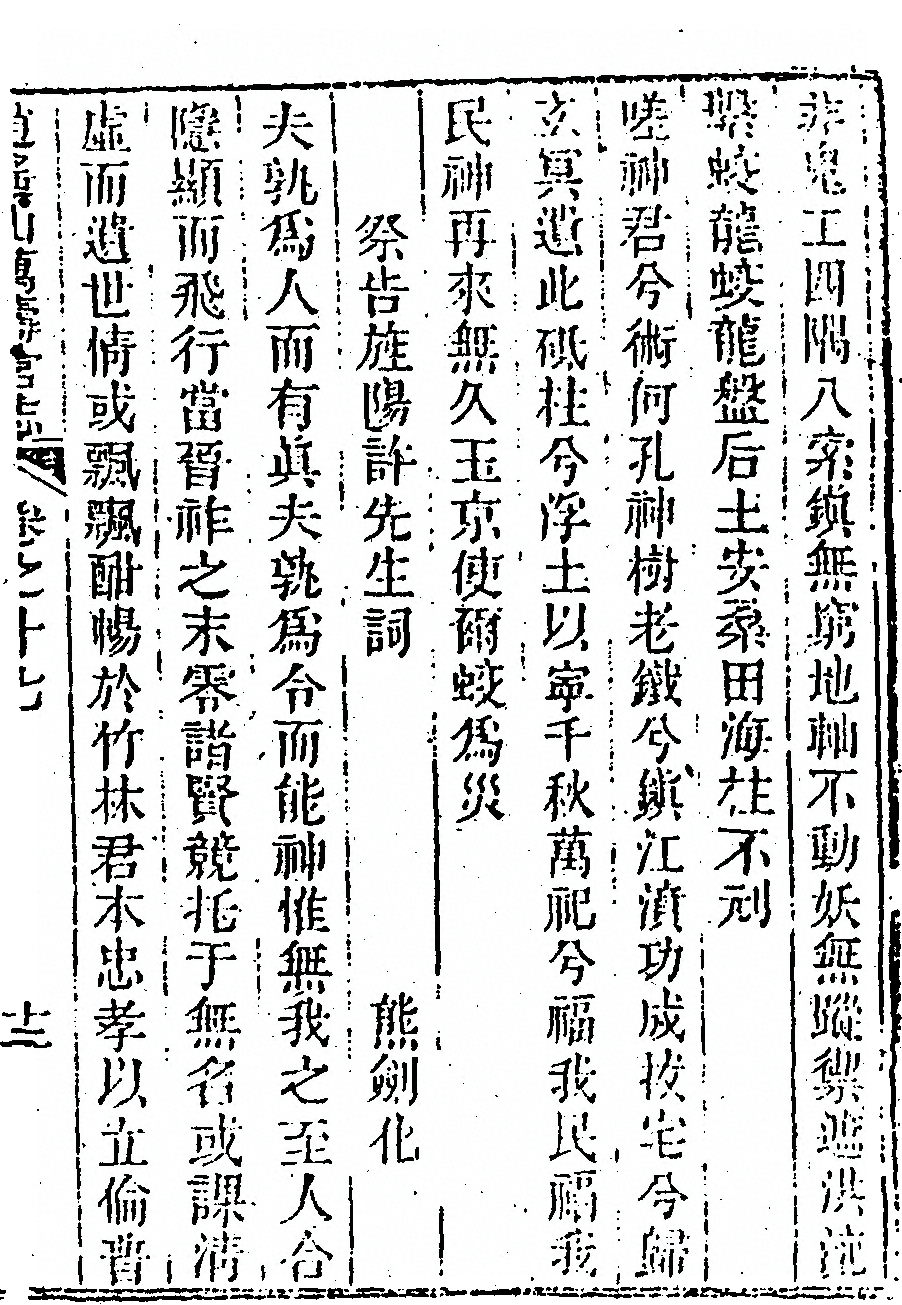 非鬼工四隅八索鎮無窮地軸不動妖無蹤禦遮洪流
繫蛟龍蛟龍盤后土安桑田海柱不刓
嗟神君兮術何孔神樹老鐵兮鎮江濆功成拔宅兮歸
玄冥遺此砥柱兮浮土以寧千秋萬祀兮福我民福我
民神再來無久玉京使爾蛟爲災
祭告旌陽許先生詞 熊劍化
夫孰爲人而有眞夫孰爲令而能神惟無我之至人合
隱顯而飛行當晉祚之末零諧賢競托于無名或課淸
虛而遺世情或飄飄酣暢於竹林君本忠孝以立倫晋
逍遙山萬壽宮志 卷之十七 十二